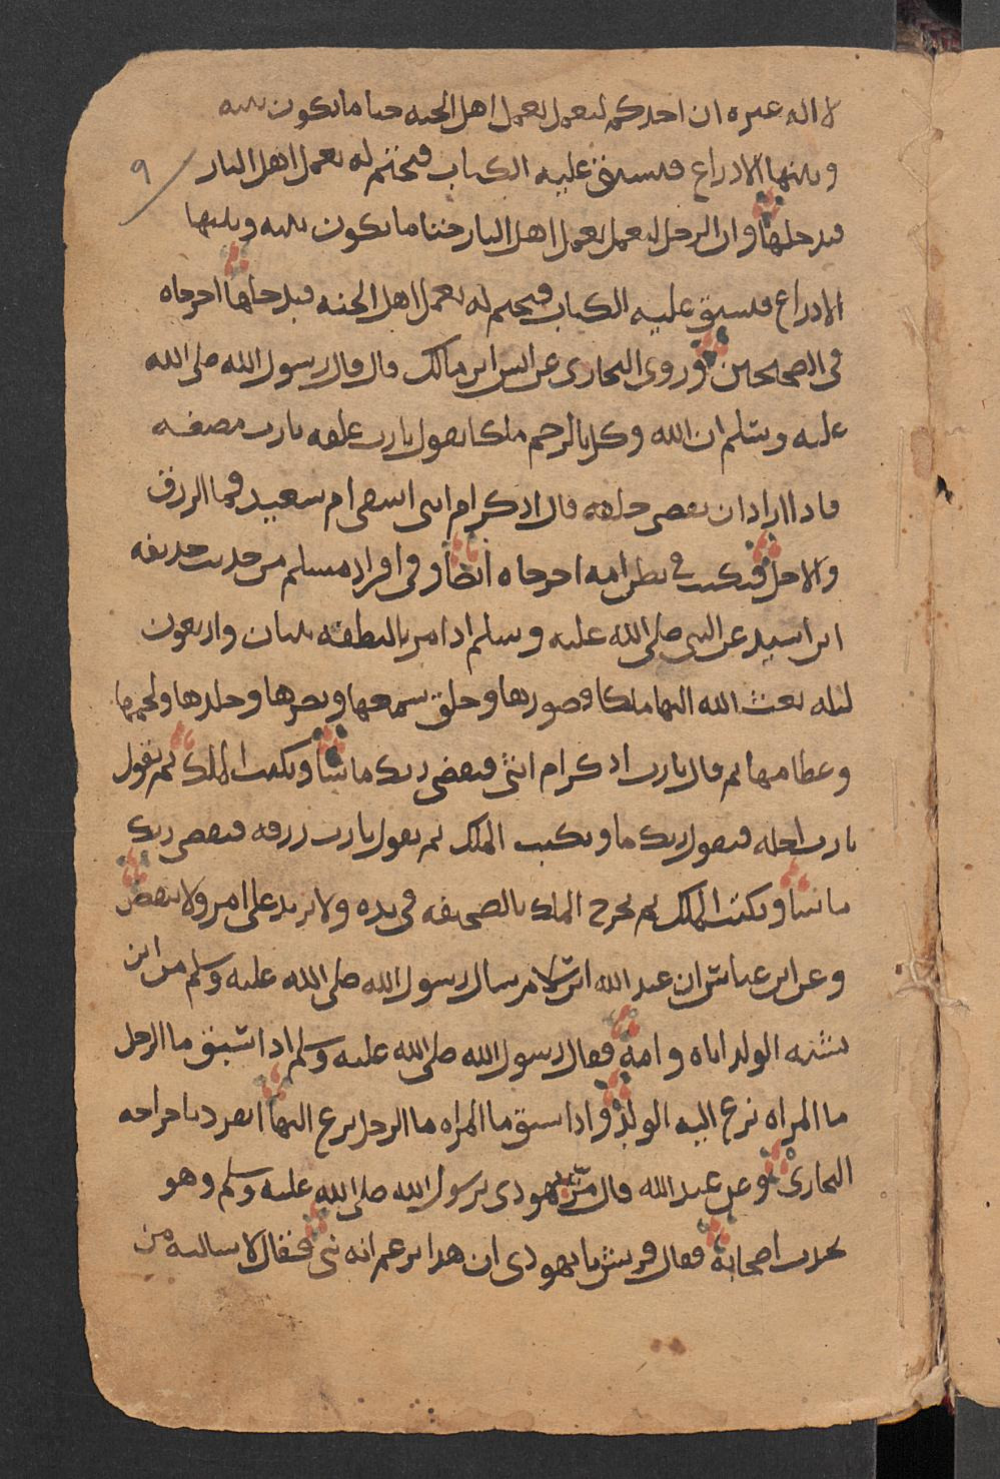 لا اله غيره ان احدكم ليعمل بعمل اهل الجنه حتا ما يكون بينه
وبينها الا ذراع فيسبق عليه الكتاب فيختم له بعمل اهل النار
٩
فيدخلها وان الرجل ليعمل بعمل اهل النار حتا ما يكون بينه وبينها
الا ذراع فيسبق عليه الكتاب فيختم له بعمل اهل الجنه فيدخلها اخرجاه
في الصحيحين وروى البخارى عن انس ابن مالك قال قال رسول الله صلى الله
عليه وسلم ان الله وكل بالرحم ملكا يقول يا رب علقه يا رب مضغه
فاذا اراد ان يقضى خلقه قال اذكر ام انثى اشقى ام سعيد فما الرزق
والاجل فيكتب في بطن امه اخرجاه ايضا وفي افراد مسلم من حديث حذيفه
ابن اسيد عن النبى صلى الله عليه وسلم اذا مر بالنطفه ثنتان واربعون
ليله بعث الله اليها ملكا فصورها وخلق سمعها وبصرها وجلدها ولحمها
وعظامها ثم قال يا رب اذكر ام انثى فيقضى ربك ما شا ويكتب الملك ثم يقول
يا رب اجله فيقول ربك ما ويكتب الملك ثم يقول يا رب رزقه فيقضى ربك
ما شا ويكتب الملك ثم يخرج الملك بالصحيفه في يده ولا يزيد على امر ولا ينقص
وعن ابن عباس ان عبد الله ابن سلام سال رسول الله صلى الله عليه وسلم من اين
يشبه الولد اباه وامه فقال رسول الله صلى الله عليه وسلم اذا سبق ما الرجل
ما المراه نزع اليه الولد واذا سبق ما المراه ما الرجل نزع اليها انفرد باخراجه
البخارى وعن عبد الله قال مر يهودى برسول الله صلى الله عليه وسلم وهو
يحدث اصحابه فقال قريش يا يهودى ان هذا يزعم انه نبى فقال لاسالنه عن